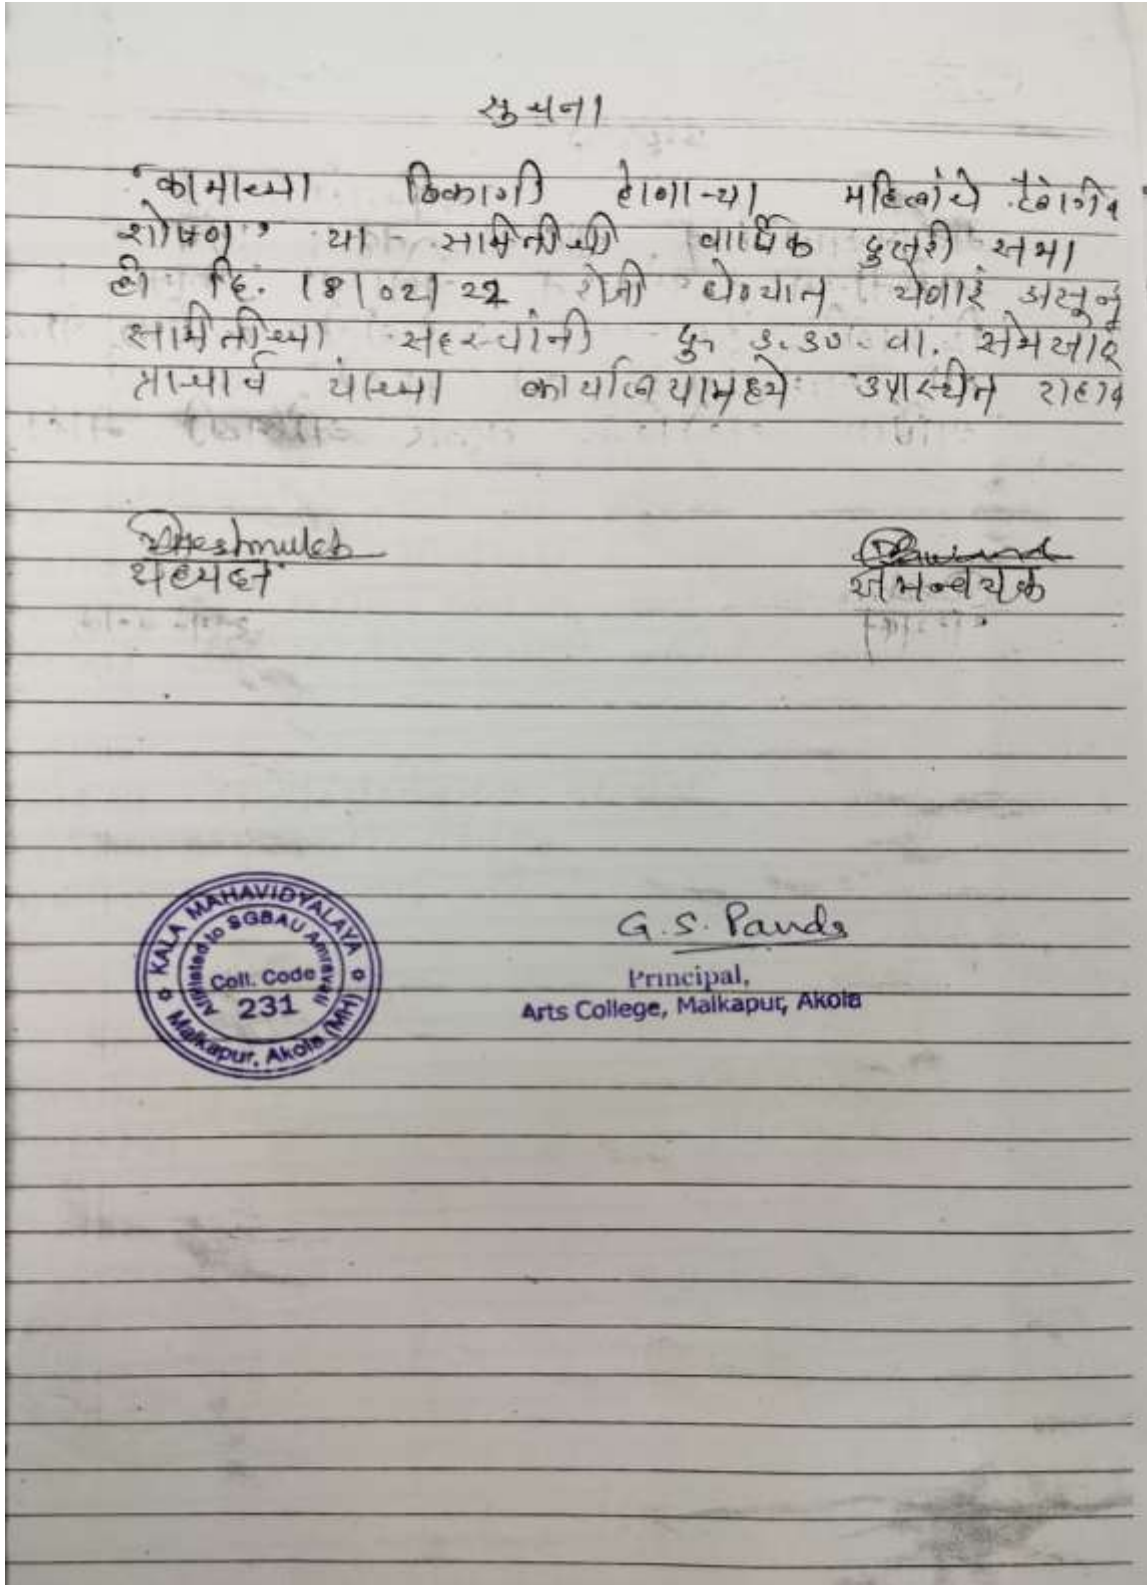 सुचना
"कामाच्या ठिकाणी होणाऱ्या महिलांचे लैंगीक
शोषण" या समितीची वार्षिक दुसरी सभा
ही दि. 18/02/22 रोजी घेण्यात येणार असुन
समितीच्या सदस्यांनी दु. ३.३० वा. समोर
प्राचार्य यांच्या कार्यालयामध्ये उपस्थित राहावे
Deshmukh
अध्यक्ष
समन्वयक
KALA MAHAVIDYALAYA
Affiliated to SGBAU Amravati
Coll. Code
231
Malkapur, Akola (MH)
G. S. Pande
Principal,
Arts College, Malkapur, Akola